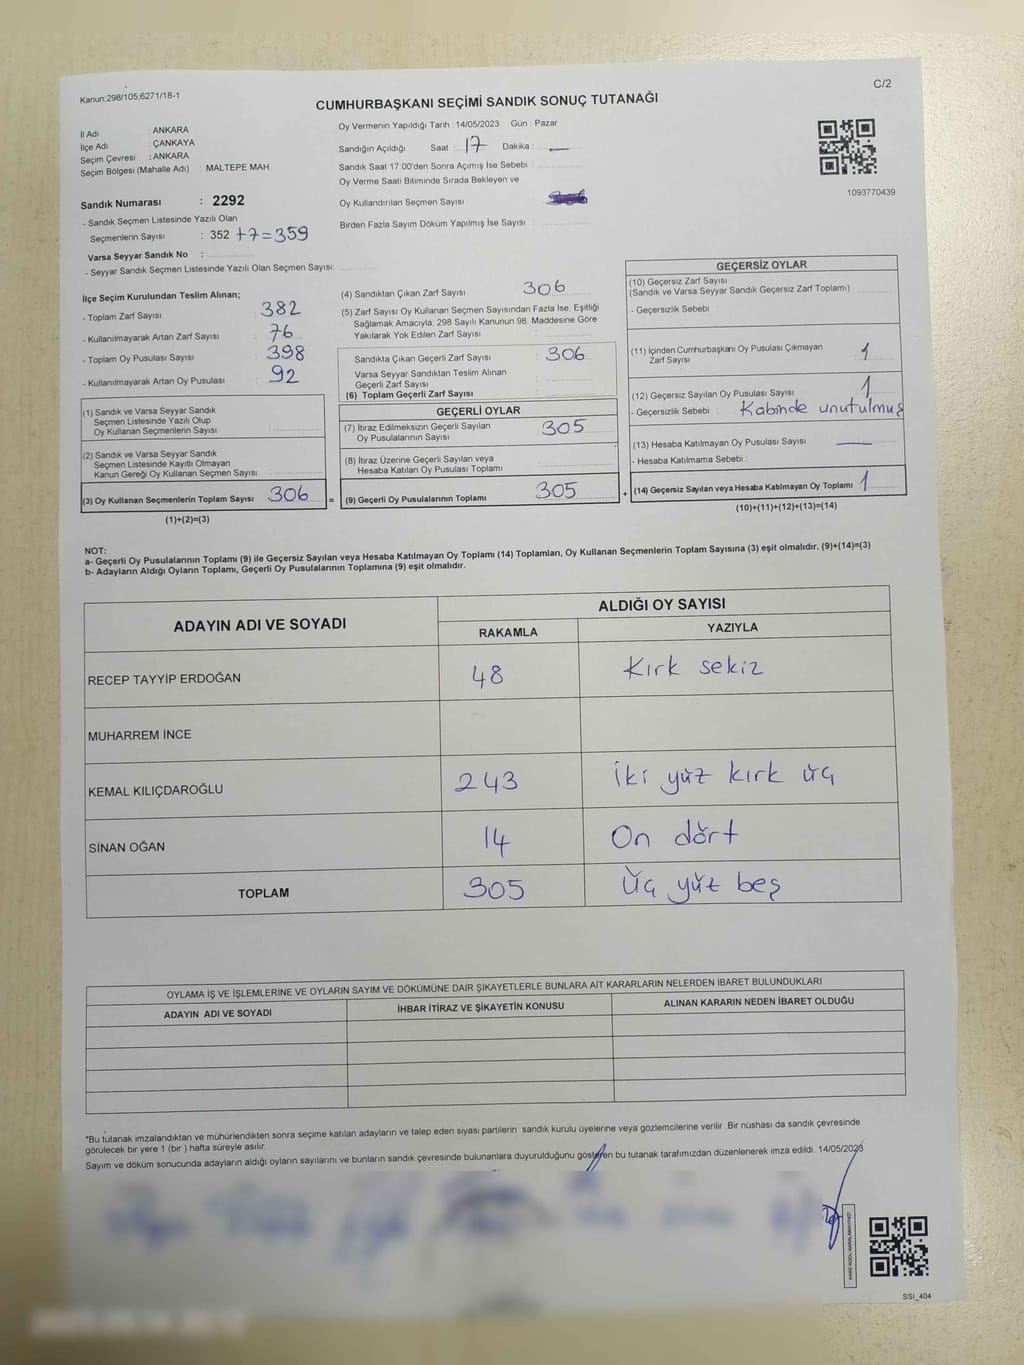 Kanun;298/105;6271/18-1
C/2
CUMHURBAŞKANI SEÇİMİ SANDIK SONUÇ TUTANAĞI
İl Adı : ANKARA
İlçe Adı : ÇANKAYA
Seçim Çevresi : ANKARA
Seçim Bölgesi (Mahalle Adı) : MALTEPE MAH.
Sandık Numarası : 2292
- Sandık Seçmen Listesinde Yazılı Olan
Seçmenlerin Sayısı : 352 +7=359
Varsa Seyyar Sandık No :
- Seyyar Sandık Seçmen Listesinde Yazılı Olan Seçmen Sayısı:
Oy Vermenin Yapıldığı Tarih : 14/05/2023 Gün : Pazar
Sandığın Açıldığı Saat : 17 Dakika : —
Sandık Saat 17:00'den Sonra Açımış İse Sebebi :
Oy Verme Saati Bitiminde Sırada Bekleyen ve
Oy Kullandırılan Seçmen Sayısı
Birden Fazla Sayım Döküm Yapılmış İse Sayısı :
1093770439
İlçe Seçim Kurulundan Teslim Alınan;
- Toplam Zarf Sayısı : 382
- Kullanılmayarak Artan Zarf Sayısı : 76
- Toplam Oy Pusulası Sayısı : 398
- Kullanılmayarak Artan Oy Pusulası : 92
(1) Sandık ve Varsa Seyyar Sandık
Seçmen Listesinde Yazılı Olup
Oy Kullanan Seçmenlerin Sayısı :
(2) Sandık ve Varsa Seyyar Sandık
Seçmen Listesinde Kayıtlı Olmayan
Kanun Gereği Oy Kullanan Seçmen Sayısı :
(3) Oy Kullanan Seçmenlerin Toplam Sayısı 306
(1)+(2)=(3)
(4) Sandıktan Çıkan Zarf Sayısı : 306
(5) Zarf Sayısı Oy Kullanan Seçmen Sayısından Fazla İse, Eşitliği
Sağlamak Amacıyla; 298 Sayılı Kanunun 98. Maddesine Göre
Yakılarak Yok Edilen Zarf Sayısı :
Sandıkta Çıkan Geçerli Zarf Sayısı : 306
Varsa Seyyar Sandıktan Teslim Alınan
Geçerli Zarf Sayısı :
(6) Toplam Geçerli Zarf Sayısı :
GEÇERLİ OYLAR
(7) İtiraz Edilmeksizin Geçerli Sayılan
Oy Pusulalarının Sayısı : 305
(8) İtiraz Üzerine Geçerli Sayılan veya
Hesaba Katılan Oy Pusulası Toplamı :
= (9) Geçerli Oy Pusulalarının Toplamı 305
GEÇERSİZ OYLAR
(10) Geçersiz Zarf Sayısı
(Sandık ve Varsa Seyyar Sandık Geçersiz Zarf Toplamı) :
- Geçersizlik Sebebi :
(11) İçinden Cumhurbaşkanı Oy Pusulası Çıkmayan
Zarf Sayısı : 1
(12) Geçersiz Sayılan Oy Pusulası Sayısı : 1
- Geçersizlik Sebebi : Kabinde unutulmuş
(13) Hesaba Katılmayan Oy Pusulası Sayısı : —
- Hesaba Katılmama Sebebi :
+ (14) Geçersiz Sayılan veya Hesaba Katılmayan Oy Toplamı 1
(10)+(11)+(12)+(13)=(14)
NOT:
a- Geçerli Oy Pusulalarının Toplamı (9) ile Geçersiz Sayılan veya Hesaba Katılmayan Oy Toplamı (14) Toplamları, Oy Kullanan Seçmenlerin Toplam Sayısına (3) eşit olmalıdır. (9)+(14)=(3)
b- Adayların Aldığı Oyların Toplamı, Geçerli Oy Pusulalarının Toplamına (9) eşit olmalıdır.
ADAYIN ADI VE SOYADI
ALDIĞI OY SAYISI
RAKAMLA YAZIYLA
RECEP TAYYİP ERDOĞAN 48 Kırk sekiz
MUHARREM İNCE
KEMAL KILIÇDAROĞLU 243 iki yüz kırk üç
SİNAN OĞAN 14 On dört
TOPLAM 305 Üç yüz beş
OYLAMA İŞ VE İŞLEMLERİNE VE OYLARIN SAYIM VE DÖKÜMÜNE DAİR ŞİKAYETLERLE BUNLARA AİT KARARLARIN NELERDEN İBARET BULUNDUKLARI
ADAYIN ADI VE SOYADI İHBAR İTİRAZ VE ŞİKAYETİN KONUSU ALINAN KARARIN NEDEN İBARET OLDUĞU
*Bu tutanak imzalandıktan ve mühürlendikten sonra seçime katılan adayların ve talep eden siyasi partilerin sandık kurulu üyelerine veya gözlemcilerine verilir. Bir nüshası da sandık çevresinde
görülecek bir yere 1 (bir) hafta süreyle asılır.
Sayım ve döküm sonucunda adayların aldığı oyların sayılarını ve bunların sandık çevresinde bulunanlara duyurulduğunu gösteren bu tutanak tarafımızdan düzenlenerek imza edildi. 14/05/2023
SSI_404